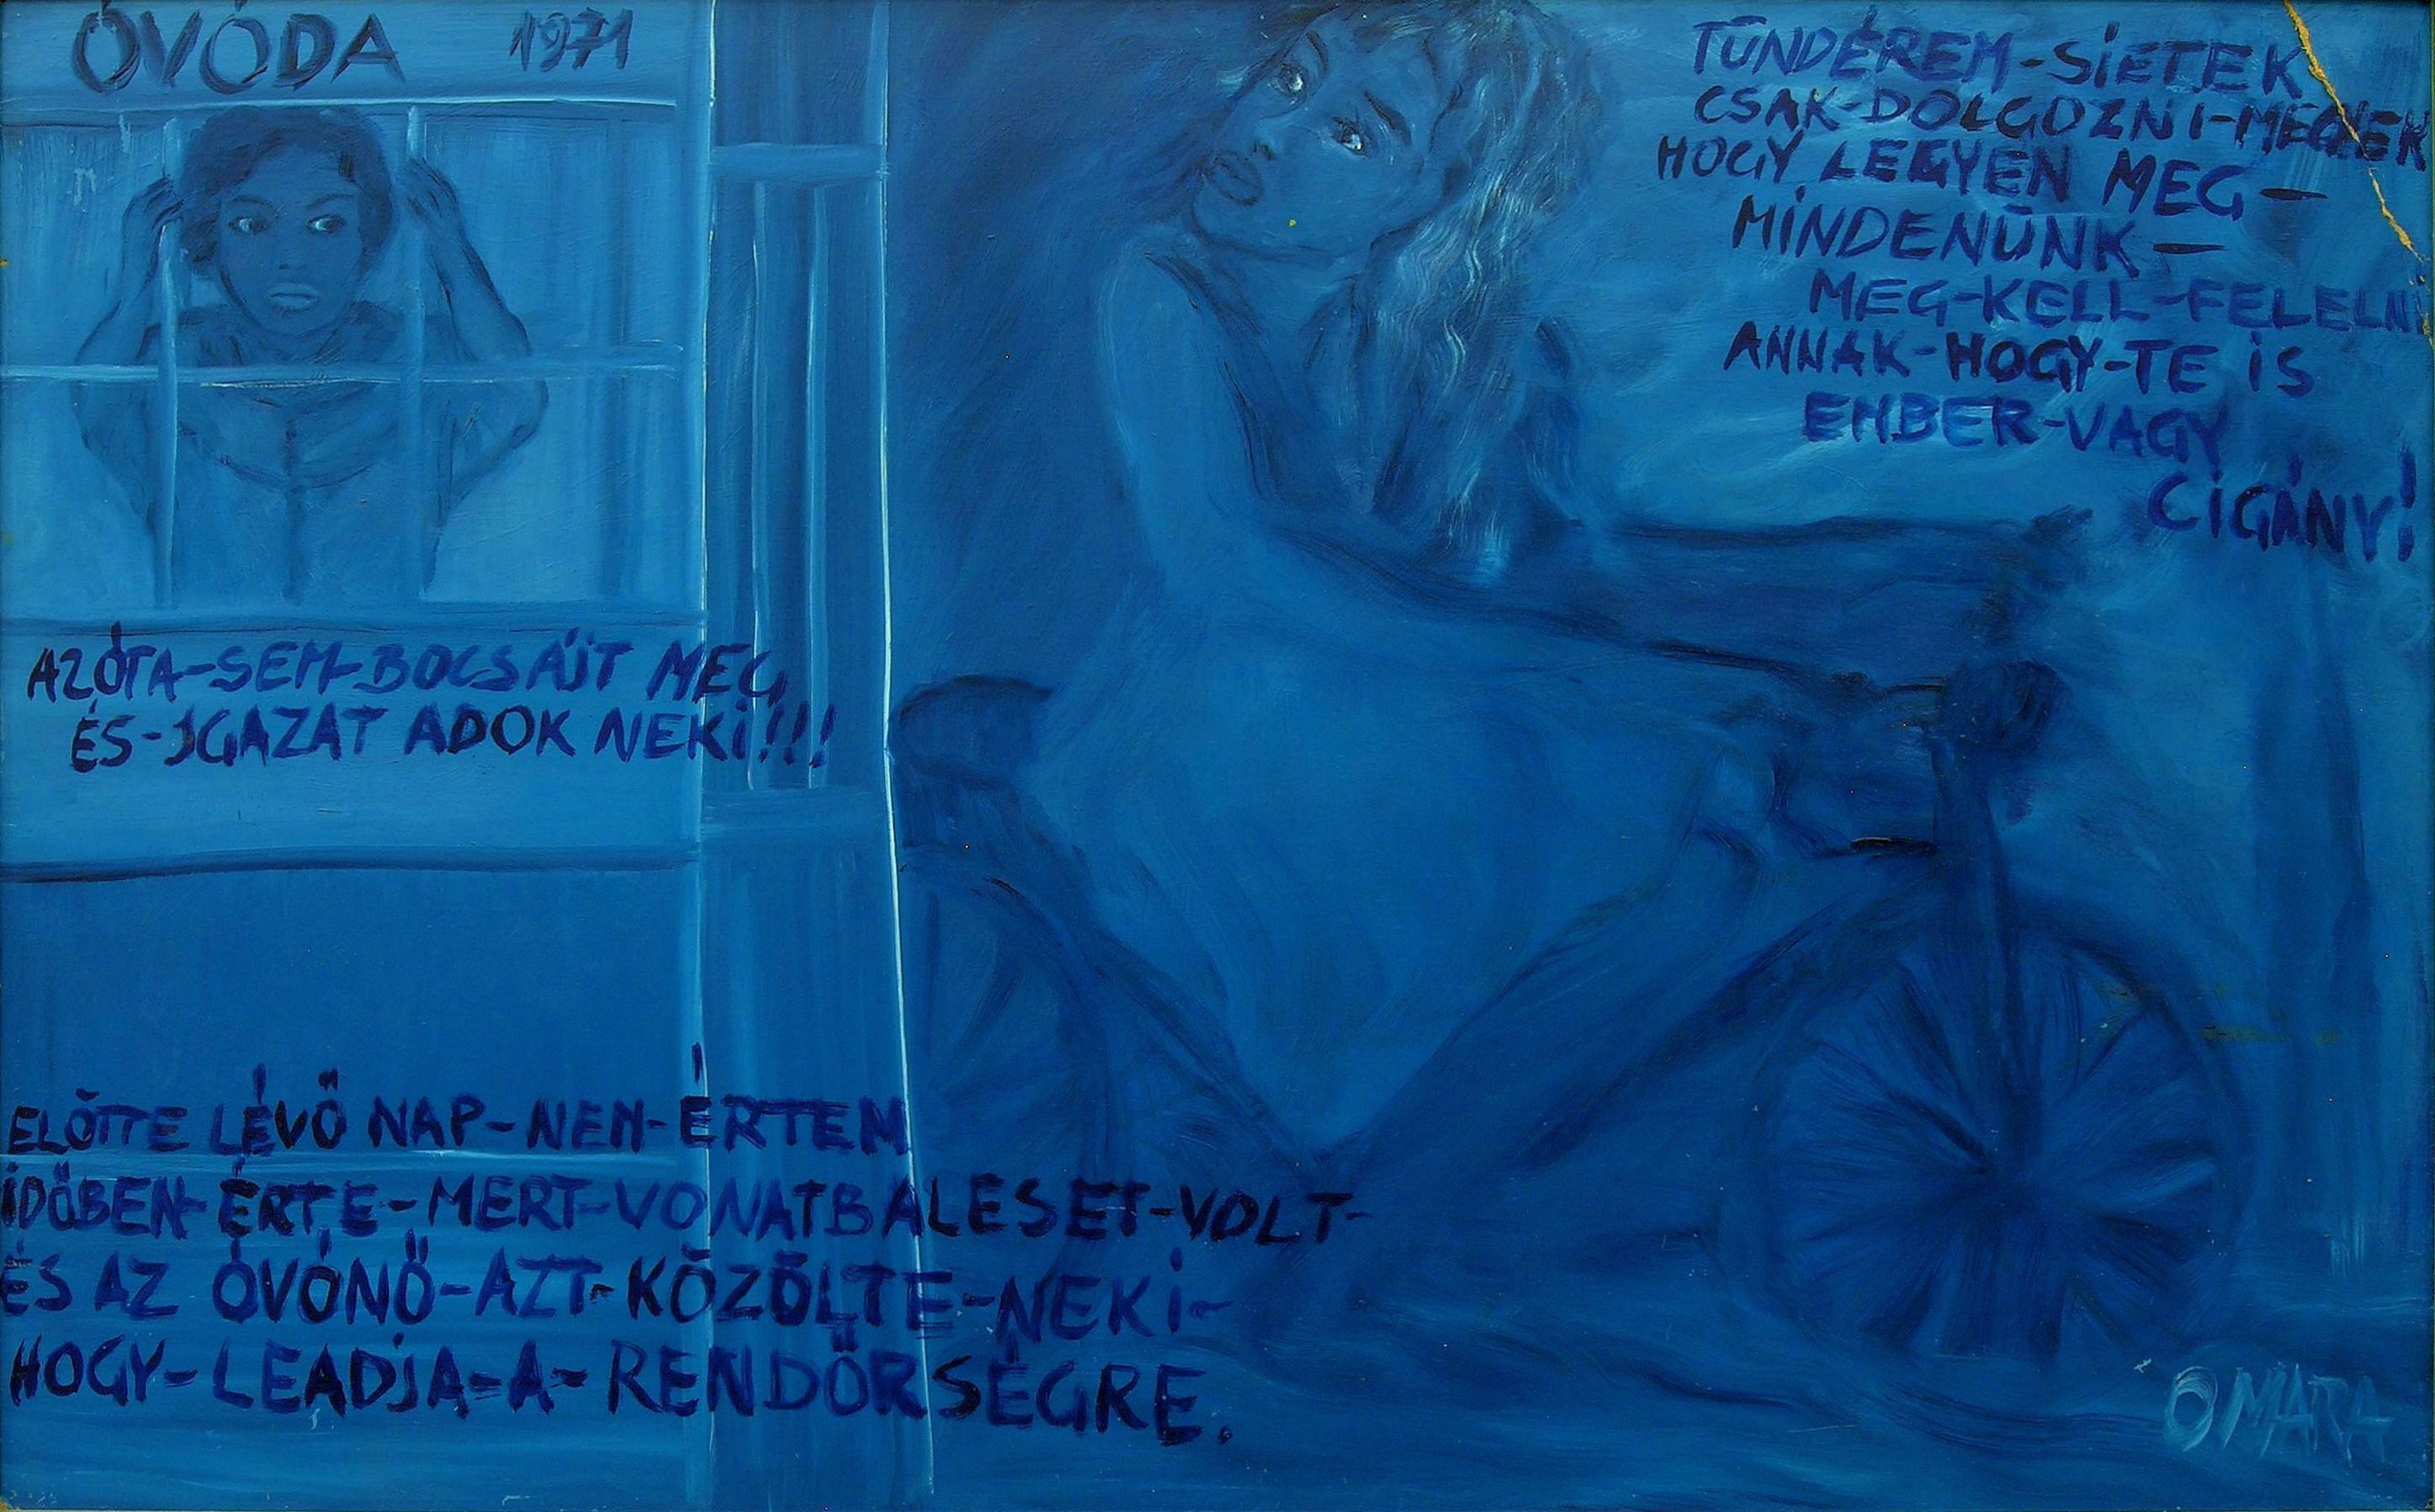 ÓVÓDA 1971
TŰNDÉREM-SIETEK
CSAK-DOLGOZNI-MEGYEK
HOGY LEGYEN MEG-
MINDENŰNK-
MEG-KELL-FELELNI
ANNAK-HOGY-TE IS
EMBER-VAGY
CIGÁNY!
AZÓTA-SEM-BOCSÁJT MEG
ÉS-IGAZAT ADOK NEKI!!!
ELŐTTE LÉVŐ NAP-NEM-ÉRTEM
IDŐBEN-ÉRTE-MERT-VONATBALESET-VOLT-
ÉS AZ ÓVÓNŐ-AZT-KŐZŐLTE-NEKI-
HOGY-LEADJA-A-RENDŐRSÉGRE.
OMARA